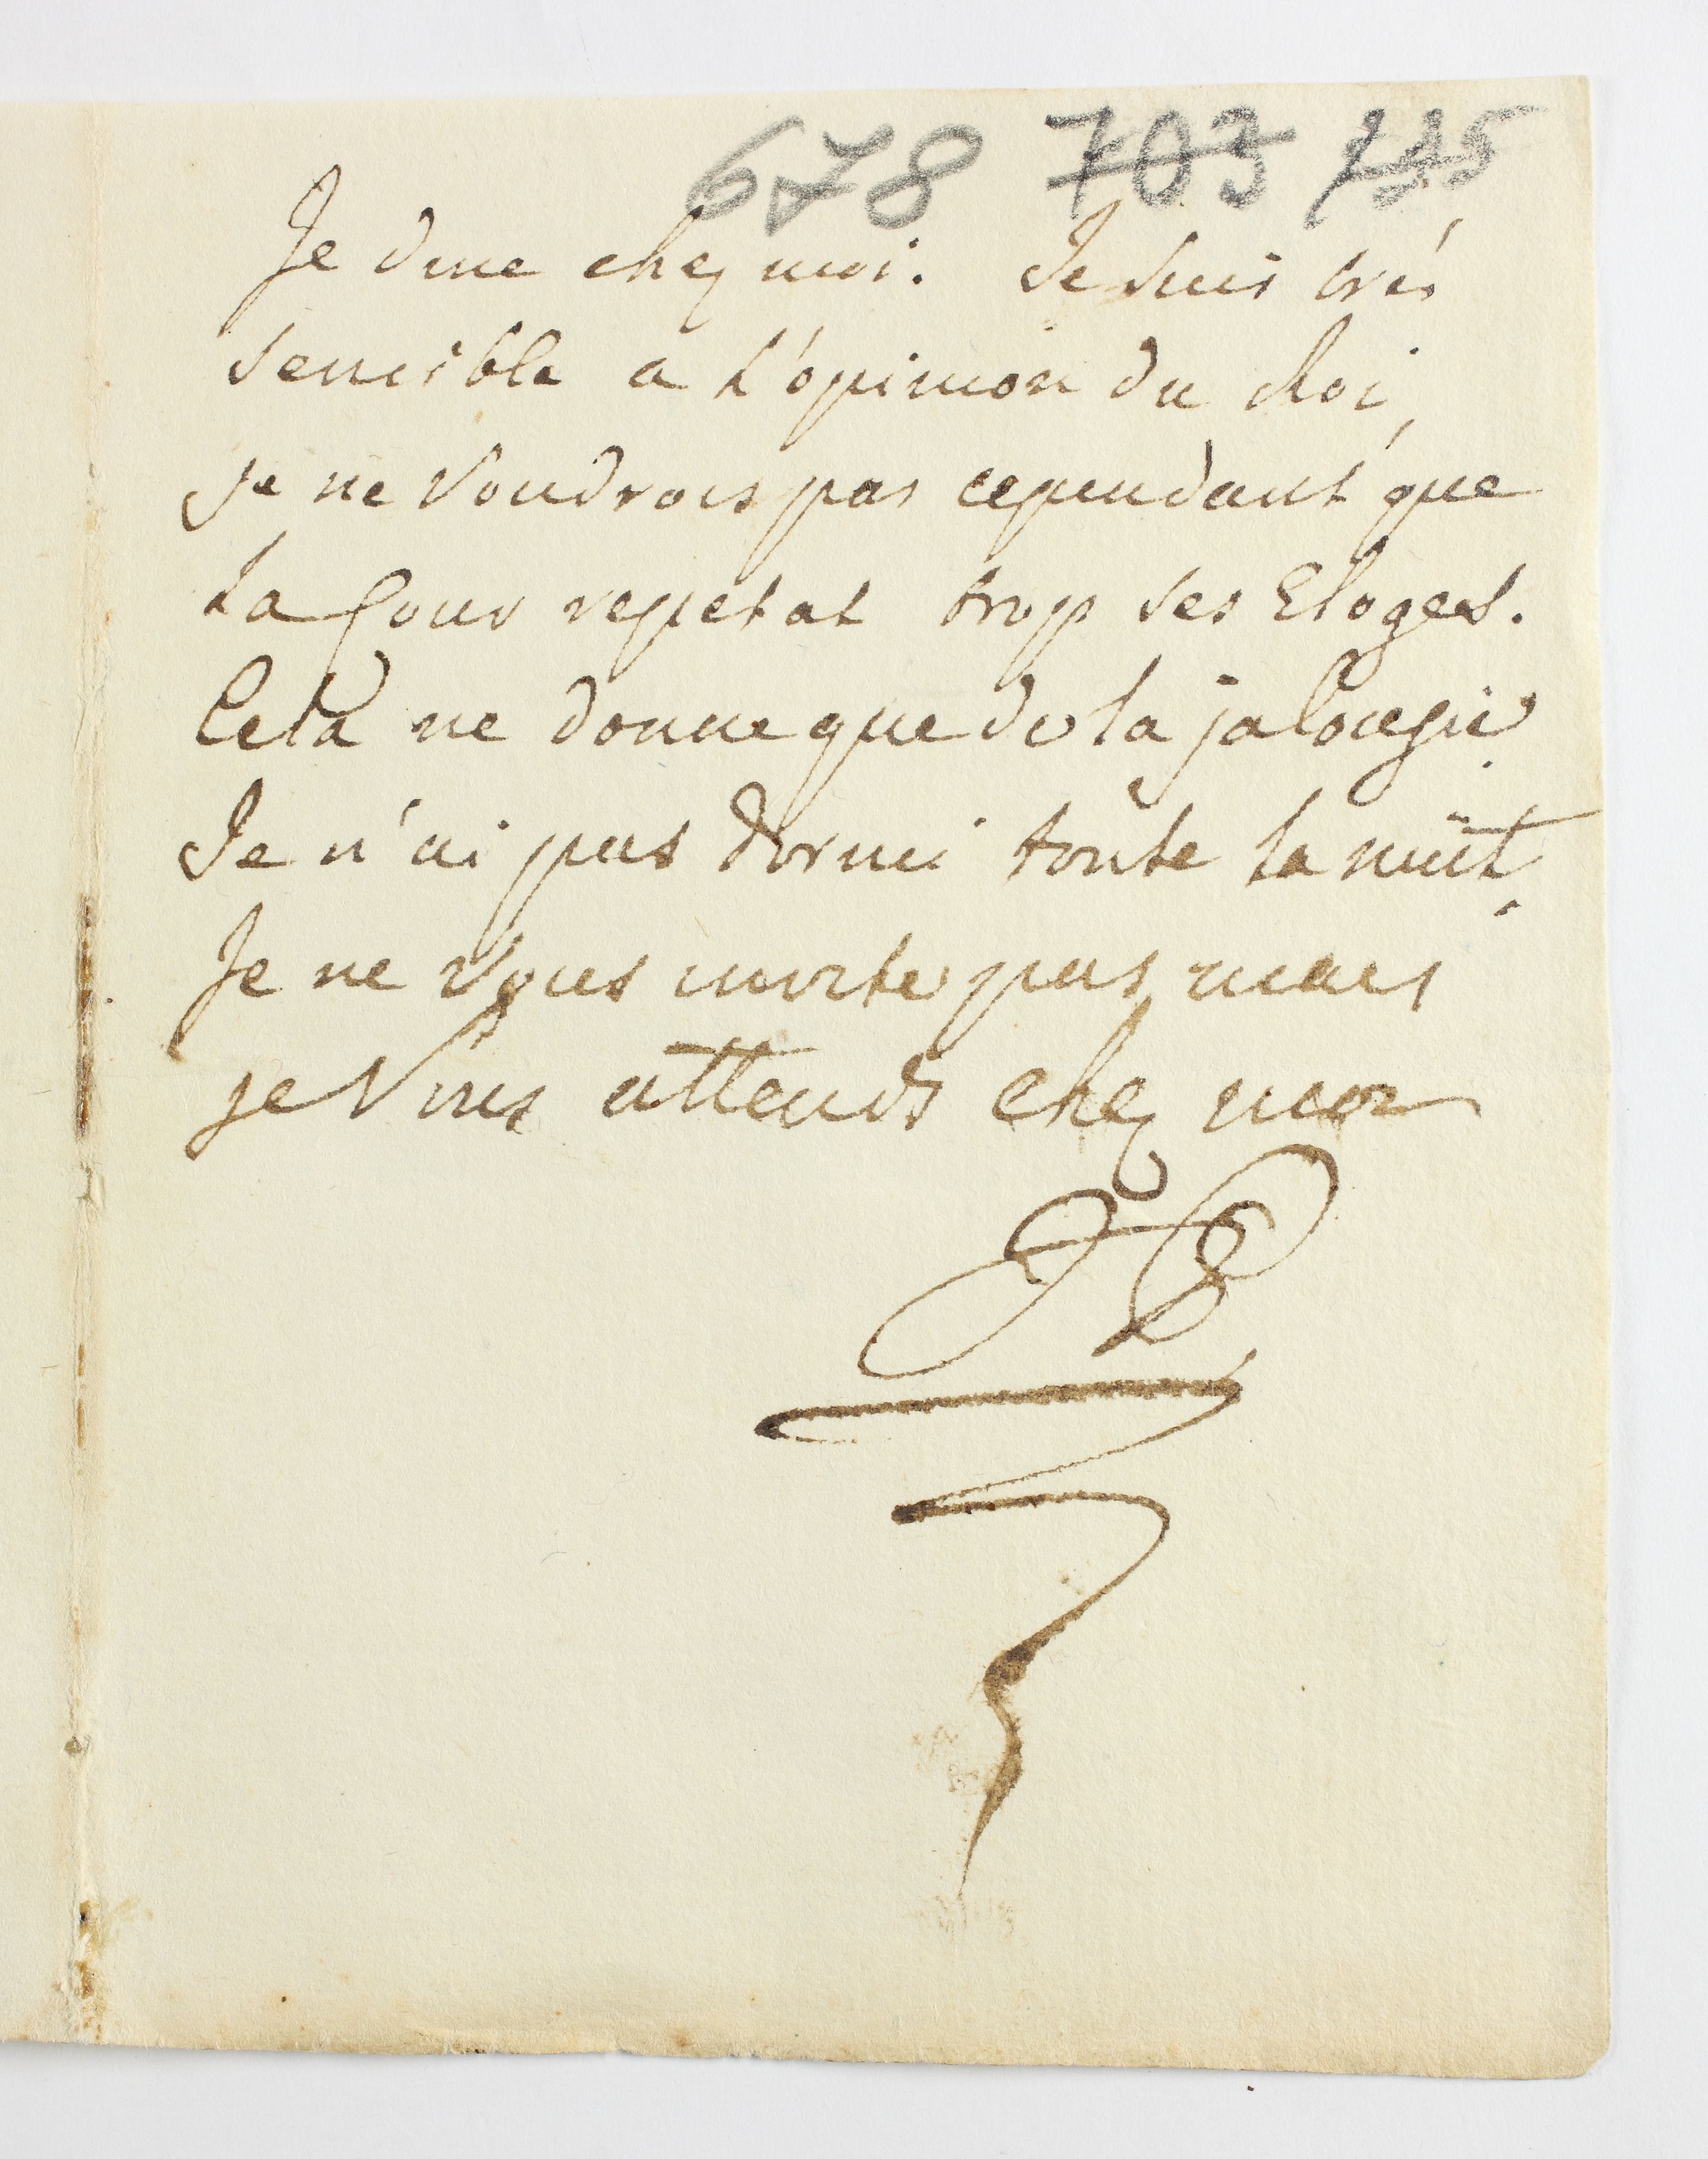 678 703 735
Je dine chez moi. Je suis trés
sensible a L'opinion du Roi,
je ne Voudrois pas cependant que
La Cour repetat trop ses Eloges.
Cela ne donne que de la jalousie.
Je n'ai pas dormi toute la nuit.
Je ne Vous invite pas mais
je Vous attends chez moi